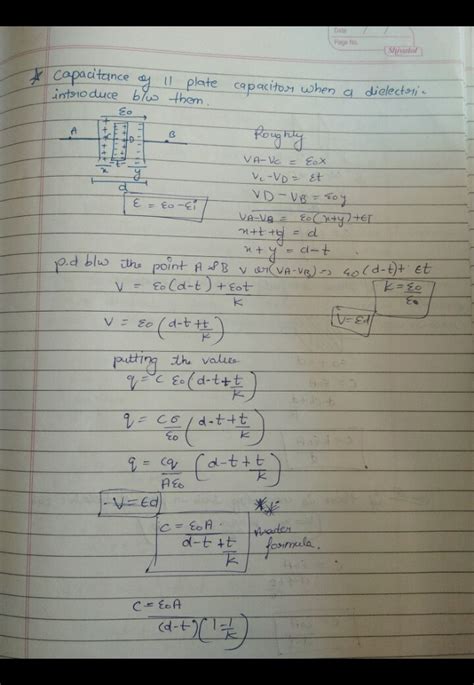 Date
Page No.
Shivalal
* Capacitance of 11 plate capacitor when a dielectri-
introduce b/w them.
ε0
A B
C D
x t y
d
ε = ε0 - εi
Roughly
VA-VC = ε0x
VC-VD = εt
VD - VB = ε0y
VA-VB = ε0(x+y)+εT
x+t+y = d
x+y = d-t
p.d b/w the point A & B V or (VA-VB) = ε0(d-t)+ εt
V = ε0(d-t) + ε0t/K
K = ε0/ε0
V=εd
V = ε0 (d-t+t/K)
putting the value
q = C ε0 (d-t+t/K)
q = Cσ/ε0 (d-t+t/K)
q = Cq/Aε0 (d-t+t/K)
-V=εd
C = ε0A/d-t+t/K
master
formula.
C = ε0A/(d-t)(1-1/K)